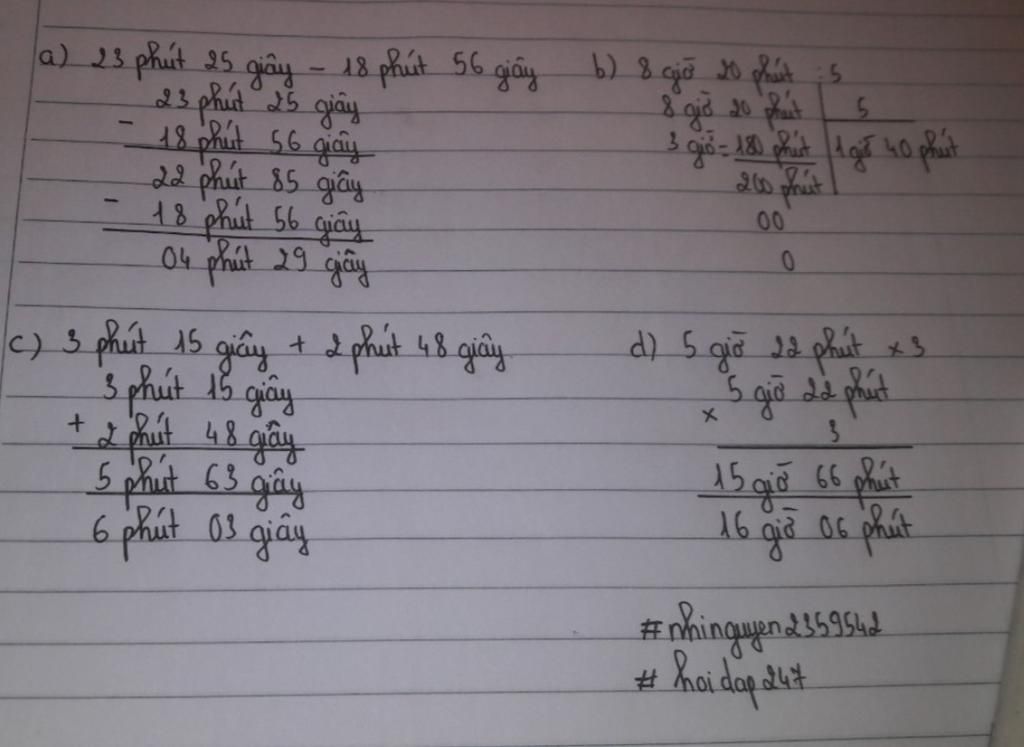 a) 23 phút 25 giây - 18 phút 56 giây
23 phút 25 giây
-
18 phút 56 giây
22 phút 85 giây
-
18 phút 56 giây
04 phút 29 giây
b) 8 giờ 20 phút : 5
8 giờ 20 phút 5
3 giờ = 180 phút 1 giờ 40 phút
200 phút
00
0
c) 3 phút 15 giây + 2 phút 48 giây
3 phút 15 giây
+
2 phút 48 giây
5 phút 63 giây
6 phút 03 giây
d) 5 giờ 22 phút x 3
5 giờ 22 phút
x
3
15 giờ 66 phút
16 giờ 06 phút
#nhinguyen2359542
# hoidap247